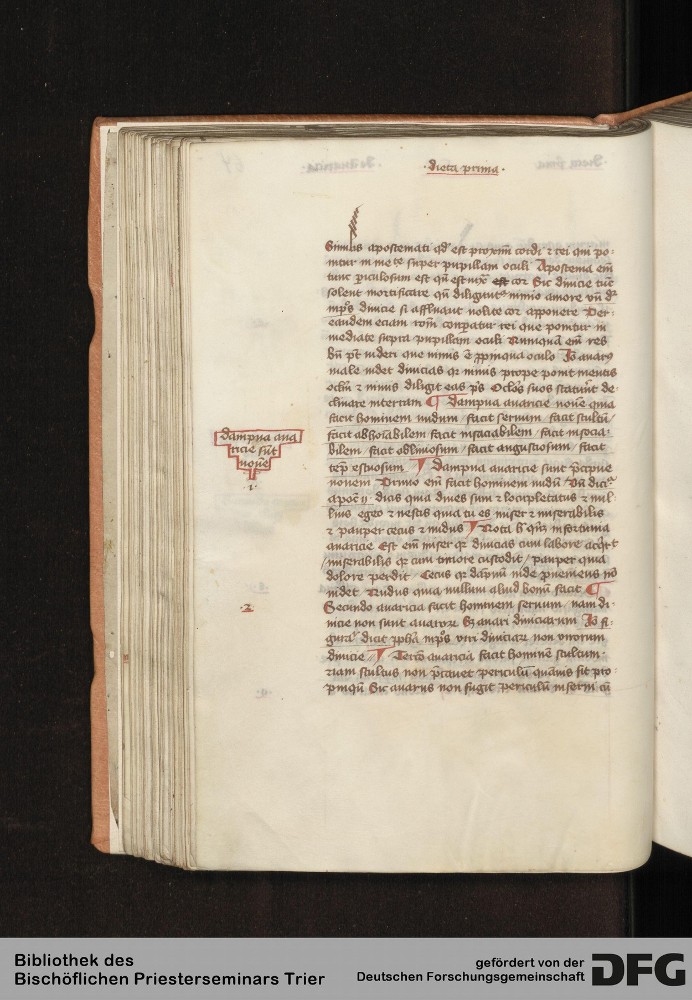 · Dieta prima ·
Similis apostemati qd' est proximū cordi & rei que po-
nitur in me te super pupillam oculi Apostema em̄
tunc piculosum est qn̄ est iuxᵃ cor Sic diuicie tūc
solent mortificare qn̄ diligunt nimio amore vn̄ dᵉ
mp̄s diuicie si affluant nolite cor apponere Per
eandem eciam rōm conparatur rei que ponitur in
mediate supra pupillam oculi Nunquā em̄ res
bn̄ pt̄ videri que nimis ē ppinqua oculo Iō auarꝰ
male videt diuicias qr nimis prope ponit mentis
oclm̄ & nimis diligit eas ps̄ Oclōs suos statuer̄t de-
clinare in terram ¶ Dampna auaricie nouē quia
facit hominem nudum / facit seruum / facit stultū /
facit abhoīabilem facit insaciabilem / facit insocia-
bilem / facit obliuiosum / facit angustiosum / facit
tep̄ estuosum ¶ Dampna auaricie sunt p̄cipue
nouem Primo em̄ facit hominem nudū Vn̄ dicitᵃ
apoc̄ ij dicis quia diues sum & locupletatus & nul-
lius egeo & nescis quia tu es miser & miserabilis
& pauper cecus & nudus ¶ Nota h̄ infortunia
auaricie Est em̄ miser qr diuicias cum labore acq̄rit
/ miserabilis qr cum timore custodit / pauper quia
dolore perdit / Cecus qr dāpnū inde pueniens nō
videt Nudus quia nullum aliud bonū facit ¶
Secundo auaricia facit hominem seruum / nam di-
uicie non sunt auaroꝝ Sꝫ auari diuiciarum Iō si-
gnrā dicit ppha mp̄s viri diuiciarꝝ non virorum
diuicie ¶ Tercō auaricia facit hominē stultum
nam stultus non p̄cauet periculū quāuis sit pro-
pinquū Sic auarus non fugit periculū inferni cū
dampna aua
ricie sūt
nouē
·1·
·2·
Bibliothek des
Bischöflichen Priesterseminars Trier
gefördert von der
Deutschen Forschungsgemeinschaft
DFG